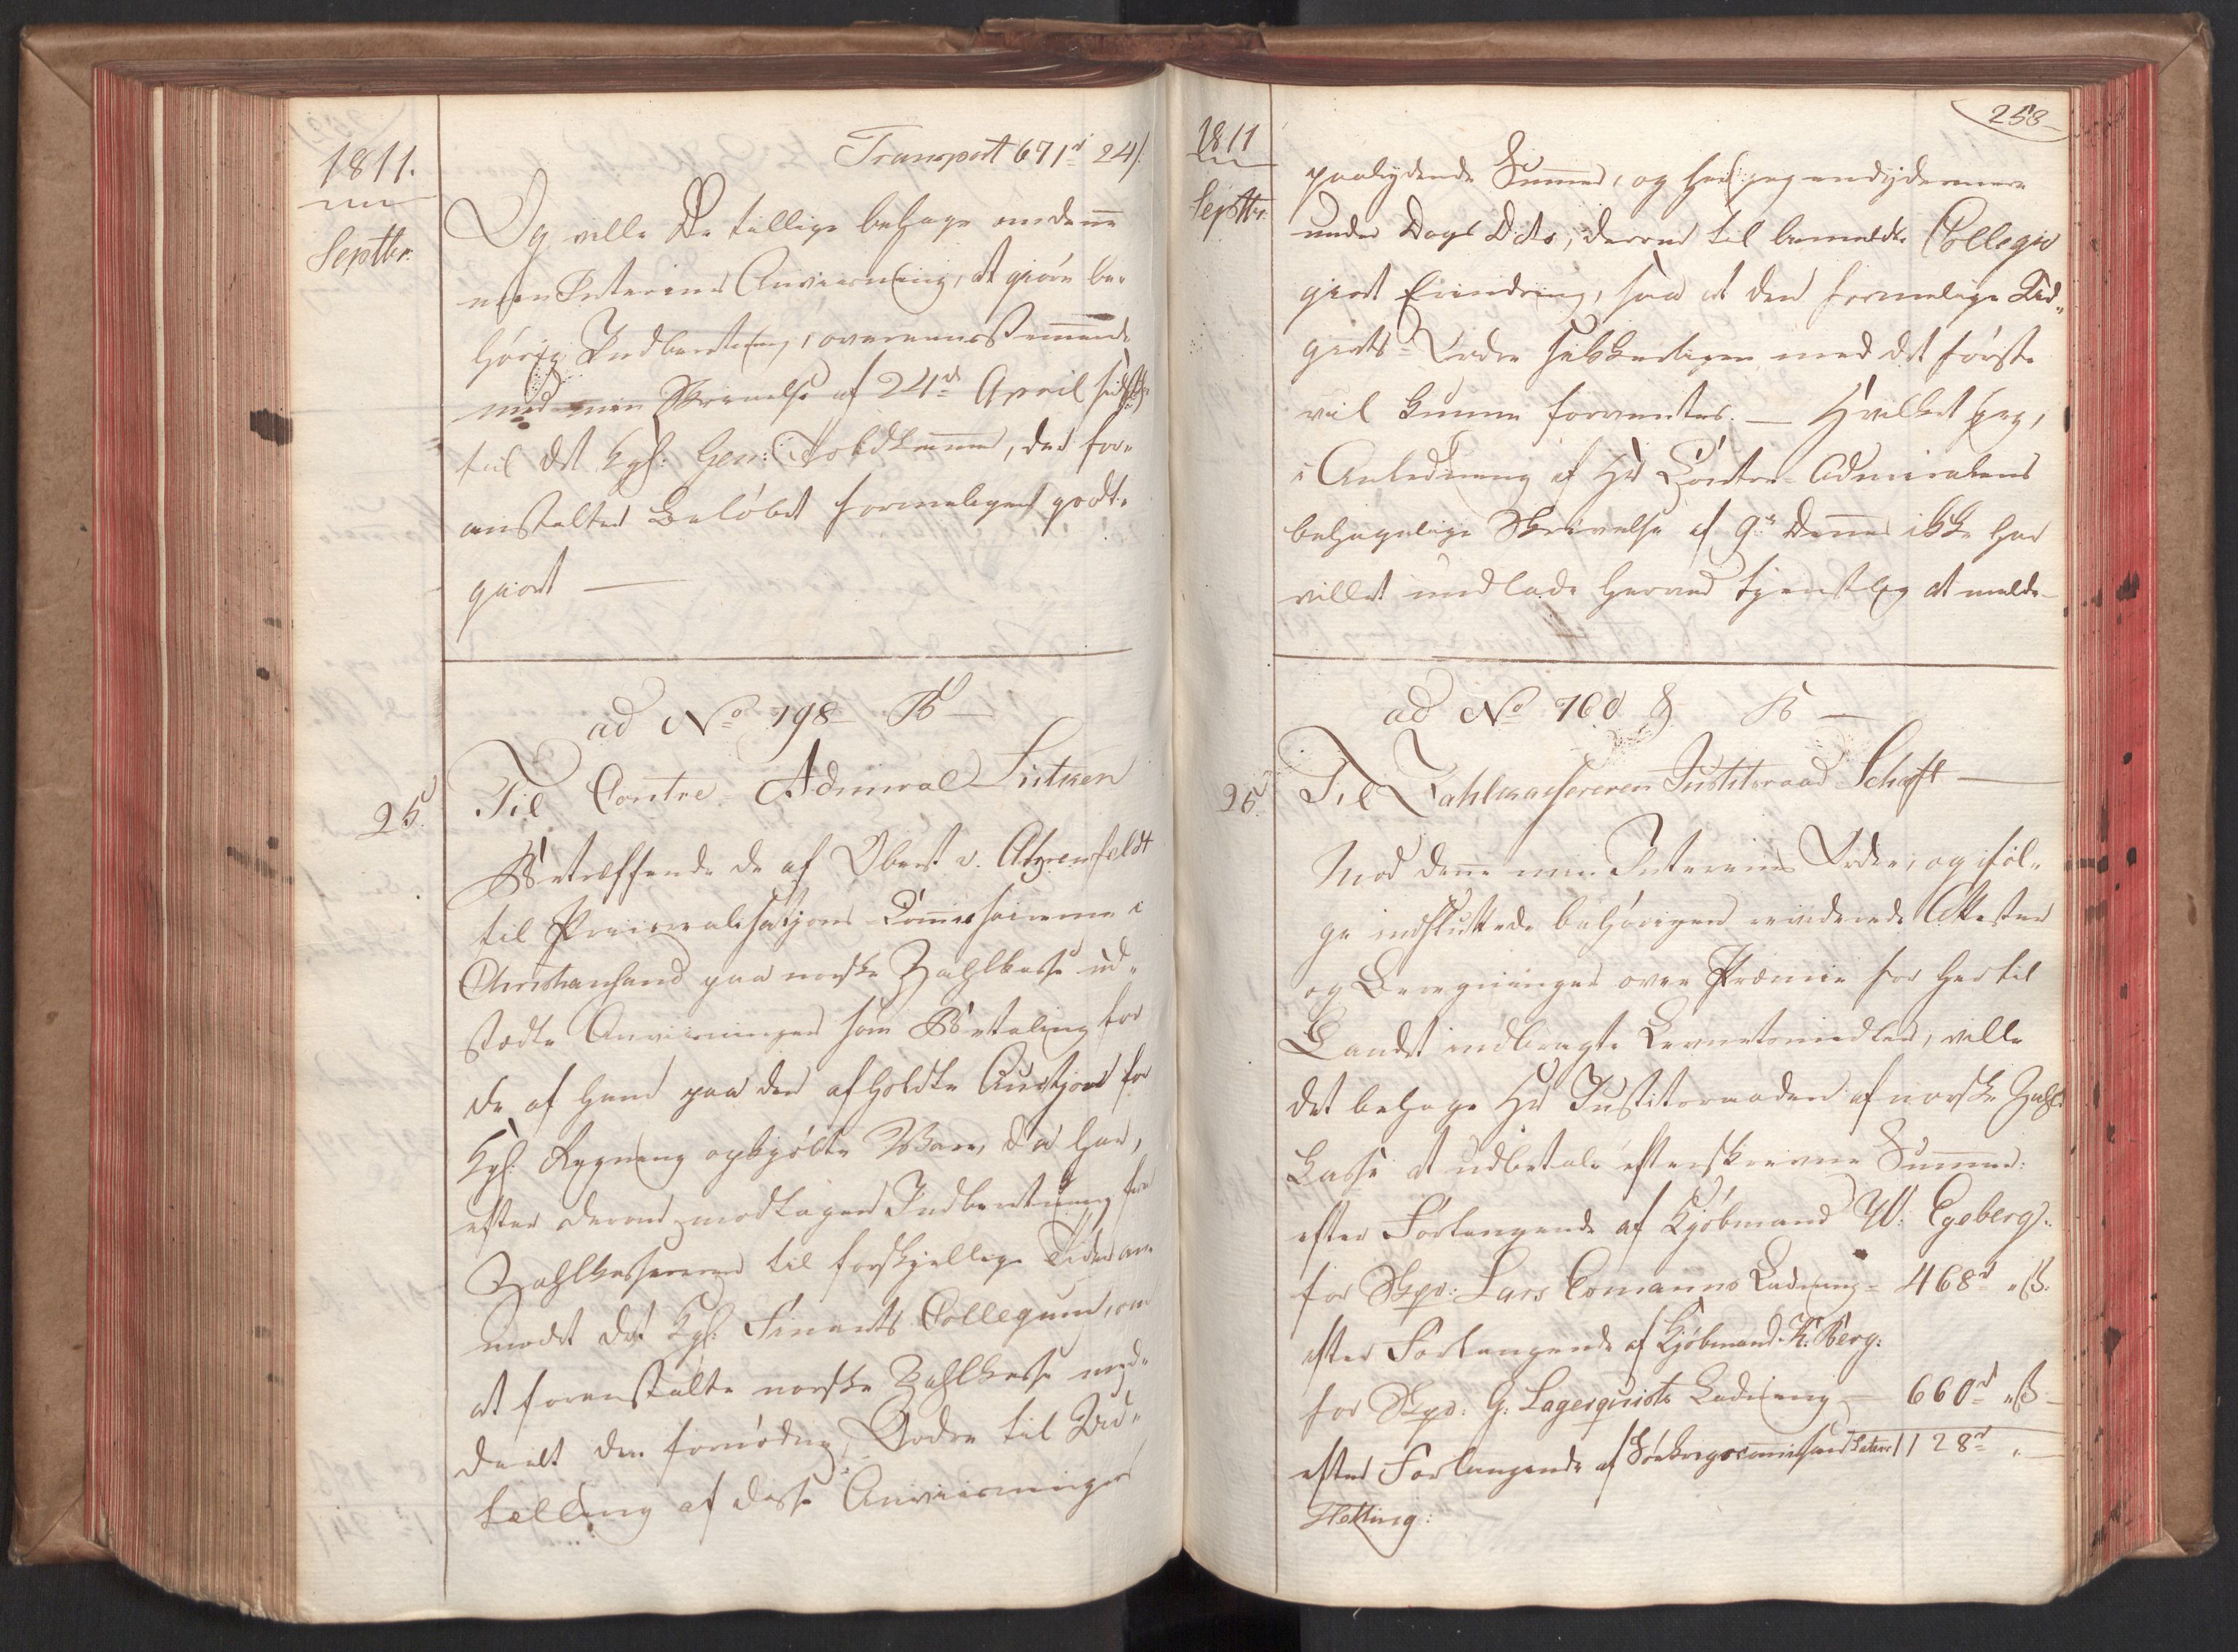 1811.
Septbr.
Transport 671rd 24s
Og ville De tillige behage om denne
min Interims Anviisning, at giøre be-
hørig Indberetning, overeensstemmende
med min Skrivelse af 24de April sidstl:
til det Kgl: Gen: Toldkammer, der for-
anstalter Beløbet formeligen godt-
giort —
ad No 198 B —
25.
Til Contre-Admiral Lütken
Betreffende de af Oberst v. Ahrenfeldt
til Priserealisations-Commissairerne i
Christiansand paa norske Zahlkasse ud-
stædte Anviisninger som Betaling for
de af ham paa den afholdte Auction for
Kgl: Regning opkjøbte Vare, da har,
efter derom modtagen Indberetning fra
Zahlkassereren til forskjellige Tider an-
modet det Kgl: Finants Collegium, om
at foranstalte norske Zahlkasse med-
deelt den fornødne Ordre til Ud-
telling af disse Anviisninger
258
1811
Septbr.
paalydende Summer, og har jeg endydermere
under Dags Dato, derom til bemeldte Collegio
giort Erindring, saa at den formelige Ud-
givts-Ordre sikkerligen med det første
vil kunne forventes. — Hvilket jeg,
i Anledning af Hr Contre-Admiralens
behagelige Skrivelse af 9de dennes ikke har
villet undlade herved tjenstlig at melde
ad No 760 B —
25.
Til Zahlkassereren Justitsraad Schøft —
Mod denne min Interims Ordre, og iføl-
ge indsluttede behørigen reviderede Attester
og Beregninger over Præmie for her til
Landet indbragte Levnetsmidler, ville
det behage Hr Justitsraaden af norske Zahl-
Casse at udbetale efterskrevne Summer:
efter Forlangende af Kjøbmand W: Egeberg:
for Skpr: Lars Comanns Ladning - 468rd "ß.
efter Forlangende af Kjøbmand K: Berg:
for Skpr: G. Lagerquists Ladning — 660rd "ß
efter Forlangende af Søekrigscommissair Lateris 1128rd "
Hetting: